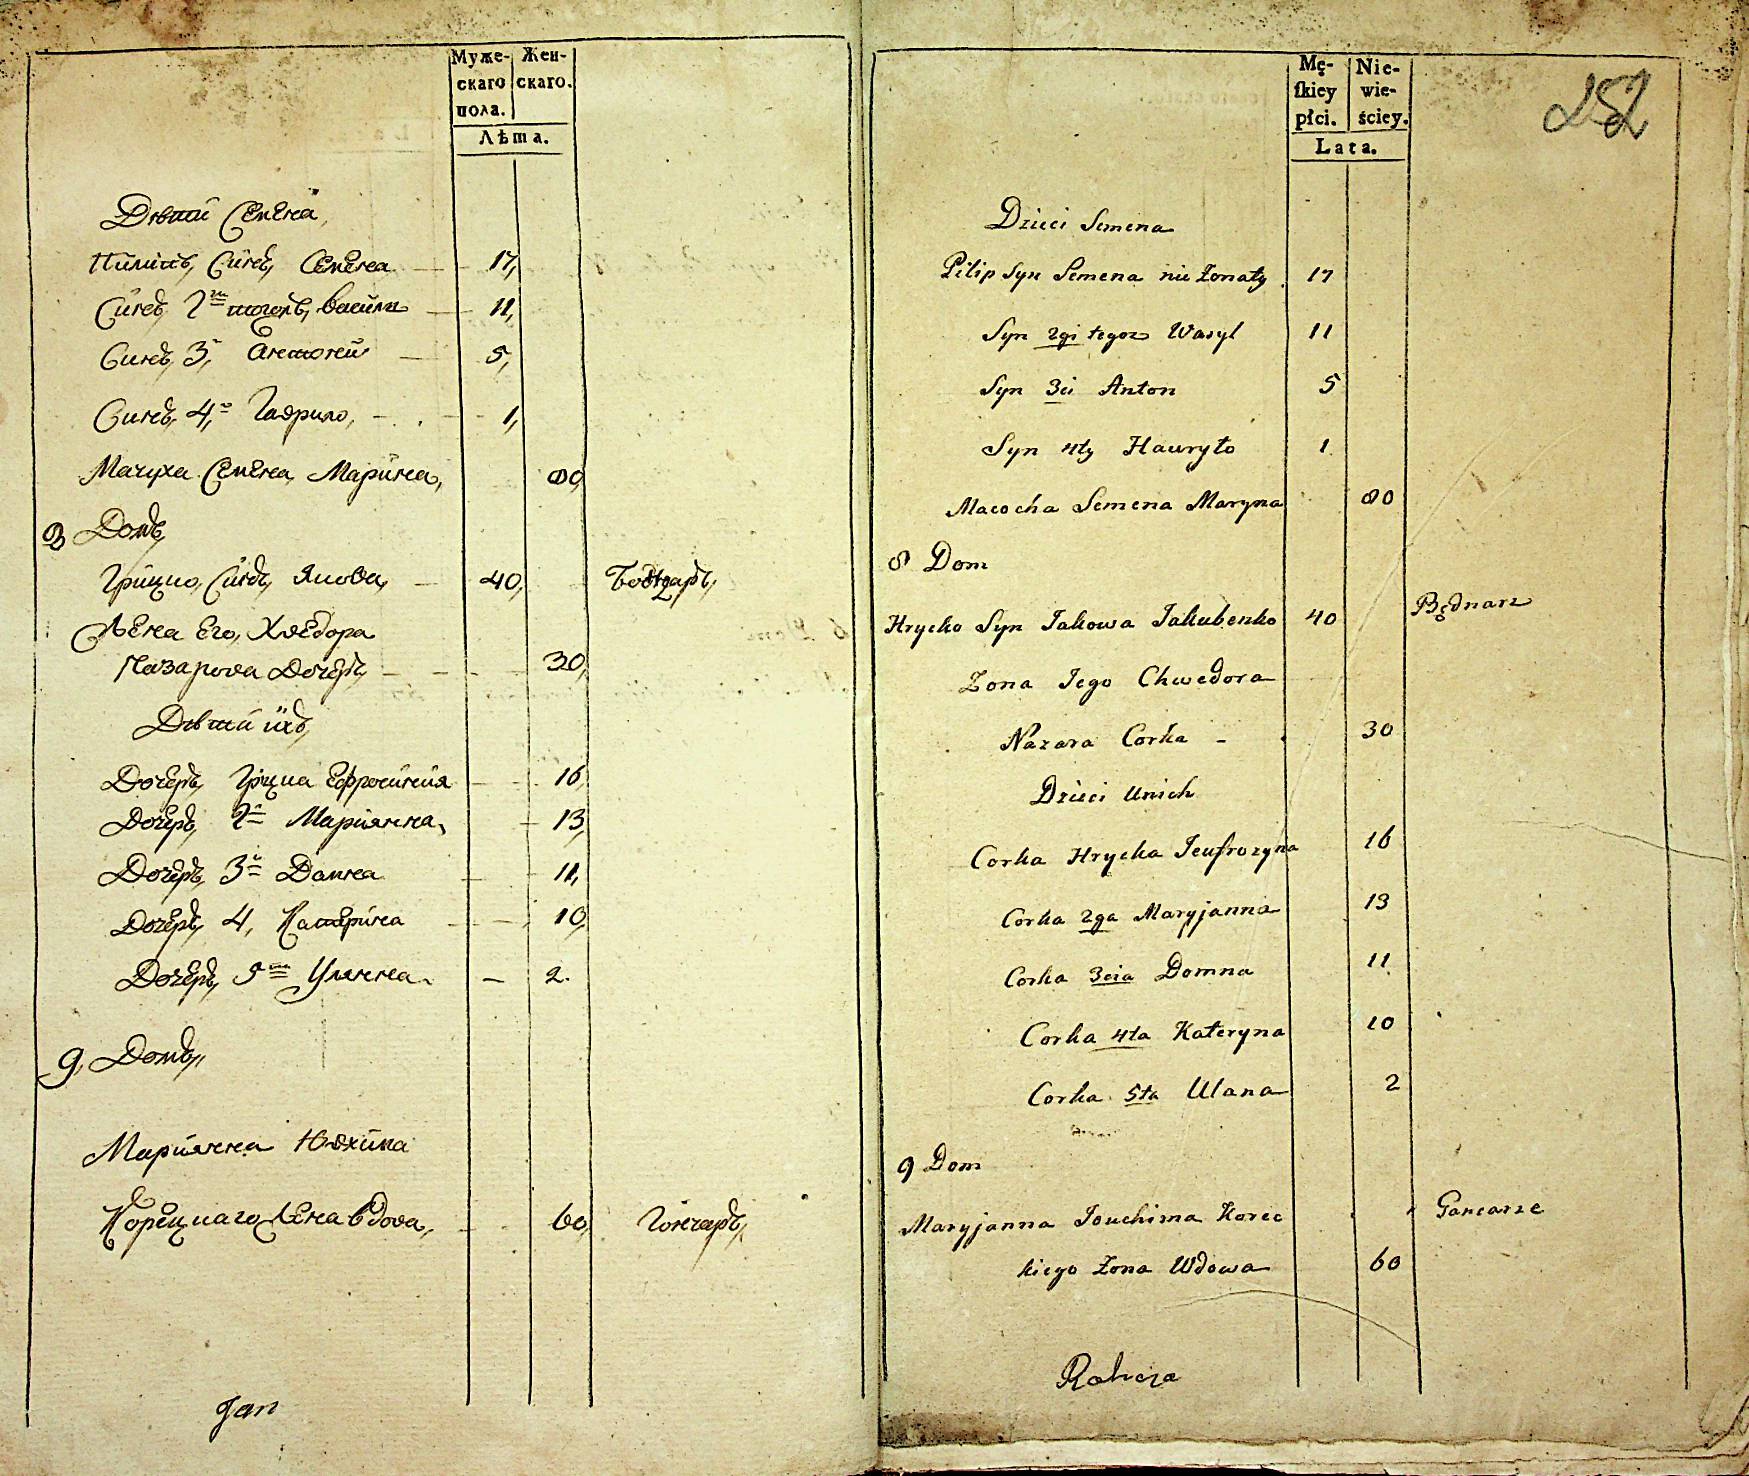 Муже-
скаго
пола.
Жен-
скаго.
Лѣта.
Дѣти Семена,
Пилипъ, Синъ, Семена 17,
Синъ, 2й тогожъ, василъ 11,
Синъ, 3й, Антоній 5,
Синъ, 4й, Гаврило, 1,
Мачуха Семена Марина, 80,
8 Домъ,
Грицко, Синъ, Якова, 40, Бондаръ,
Жена Его, Хведора
Назарова Дочеръ, 30,
Дѣти ихъ,
Дочеръ, Грицка Ефросинія 16,
Дочеръ, 2я Маріянна, 13,
Дочеръ, 3я Домна 11,
Дочеръ, 4, Катерина 10,
Дочеръ, 5та Улянна. 2.
9, Домъ,
Маріянна Юхима
Корецкаго Жена вдова, 60, Гончаръ,
Jan
Mę-
ſkiey
płci.
Nie-
wie-
ściey.
Lata.
252
Dzieci Semena
Pilip Syn Semena nie Żonaty 17
Syn 2gi tegoz Wasyl 11
Syn 3ci Anton 5
Syn 4ty Hawryło 1
Macocha Semena Maryna 80
8 Dom
Hrycko Syn Jakowa Jakubenko 40 Będnarz
Zona Jego Chwedora
Nazara Corka - 30
Dzieci Unich
Corka Hrycka Jeufrozyna 16
Corka 2ga Maryjanna 13
Corka 3cia Domna 11
Corka 4ta Kateryna 10
Corka 5ta Ulana 2
9 Dom
Maryjanna Jouchima Korec Garcarze
kiego Żona Wdowa 60